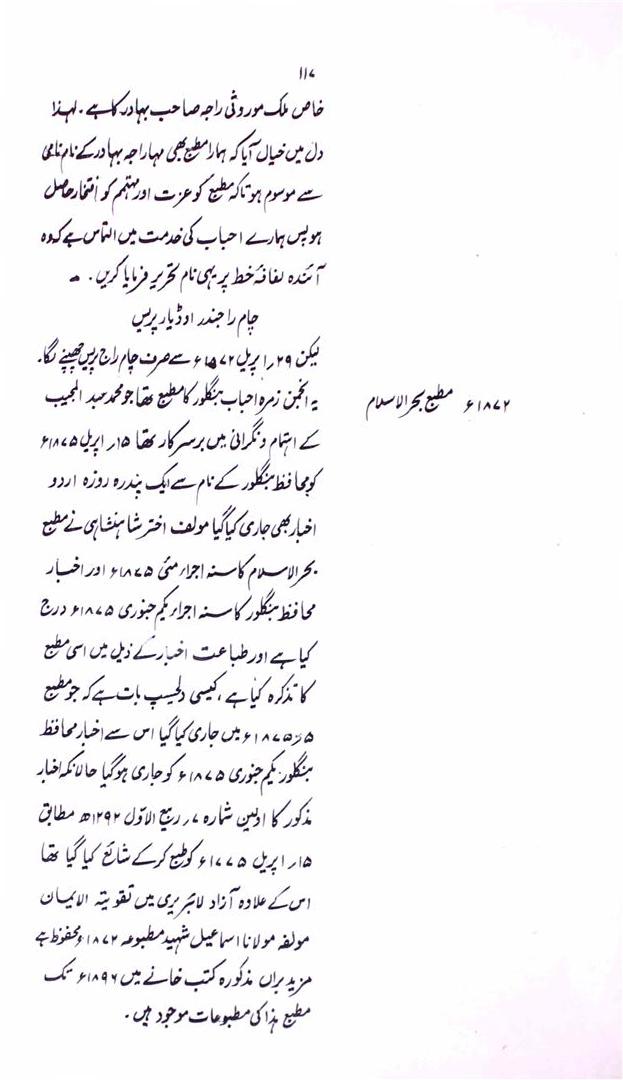 ۱۱۷
خاص ملک موروثی راجہ صاحب بہادر کا ہے۔ لہذا
دل میں خیال آیا کہ ہمارا مطبع بھی مہاراجہ بہادر کے نام نامی
سے موسوم ہو تاکہ مطبع کو عزت اور مہتمم کو افتخار حاصل
ہو پس ہمارے احباب کی خدمت میں التماس ہے کہ وہ
آئندہ لفافۂ خط پر یہی نام تحریر فرمایا کریں۔
چام راجندر اوڈیار پریس
لیکن ۲۹؍ اپریل ۱۸۷۲ء سے صرف چام راج پریس چھپنے لگا۔
۱۸۷۲ء مطبع بحرالاسلام
یہ انجمن زمرہ احباب بنگلور کا مطبع تھا جو محمد عبدالمجیب
کے اہتمام و نگرانی میں برسرکار تھا ۱۵؍ اپریل ۱۸۷۵ء
کو محافظ بنگلور کے نام سے ایک پندرہ روزہ اردو
اخبار بھی جاری کیا گیا مولف اختر شاہنشاہی نے مطبع
بحرالاسلام کا سنہ اجراء مئی ۱۸۷۵ء اور اخبار
محافظ بنگلور کا سنہ اجراء یکم جنوری ۱۸۷۵ء درج
کیا ہے اور طباعت اخبار کے ذیل میں اسی مطبع
کا تذکرہ کیا ہے، کیسی دلچسپ بات ہے کہ جو مطبع
۱۸۷۵ء میں جاری کیا گیا اس سے اخبار محافظ
بنگلور یکم جنوری ۱۸۷۵ء کو جاری ہوگیا حالانکہ اخبار
مذکور کا اولین شمارہ ۷؍ ربیع الاوّل ۱۲۹۲ھ مطابق
۱۵؍ اپریل ۱۷۷۵ء کو طبع کرکے شائع کیا گیا تھا
اس کے علاوہ آزاد لائبریری میں تقویتہ الایمان
مولفہ مولانا اسماعیل شہید مطبوعہ ۱۸۷۲ء محفوظ ہے
مزید براں مذکورہ کتب خانے میں ۱۸۹۶ء تک
مطبع ہذا کی مطبوعات موجود ہیں۔